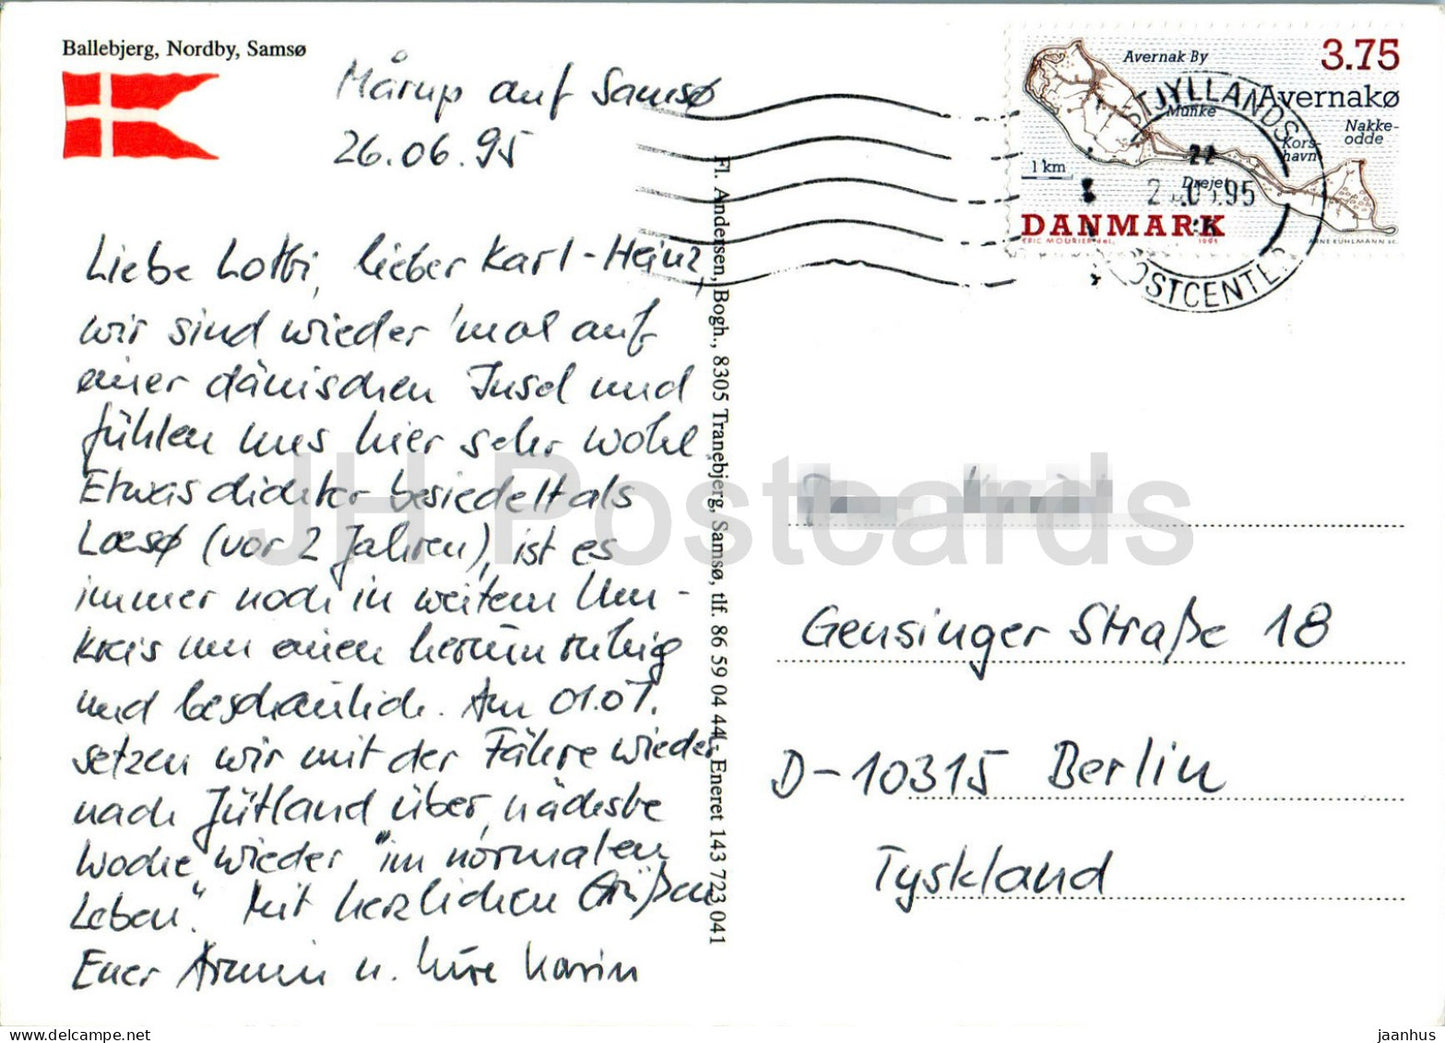 Ballebjerg, Nordby, Samsø
Mårup auf Samsø
26.06.95
Liebe Lotti, lieber Karl-Heinz,
wir sind wieder 'mal auf
einer dänischen Insel und
fühlen uns hier sehr wohl.
Etwas dichter besiedelt als
Læsø (vor 2 Jahren), ist es
immer noch in weitem Um-
kreis um einen herum ruhig
und beschaulich. Am 01.07.
setzen wir mit der Fähre wieder
nach Jütland über, nächste
Woche wieder "im normalen
Leben". Mit herzlichen Grüßen
Euer Armin u. Eure Karin
Fl. Andersen, Bogh., 8305 Tranebjerg, Samsø, tlf. 86 59 04 44, Eneret 143 723 041
3.75
Avernak By
Avernakø
Munke
Nakke-
odde
Kors-
havn
1 km
Drejet
DANMARK
ERIC MOURIER del. 1995 ARNE KÜHLMANN sc.
JYLLANDS
POSTCENTER
22
95
Gensinger Straße 18
D-10315 Berlin
Tyskland
JH Postcards
delcampe.net
jaanhus